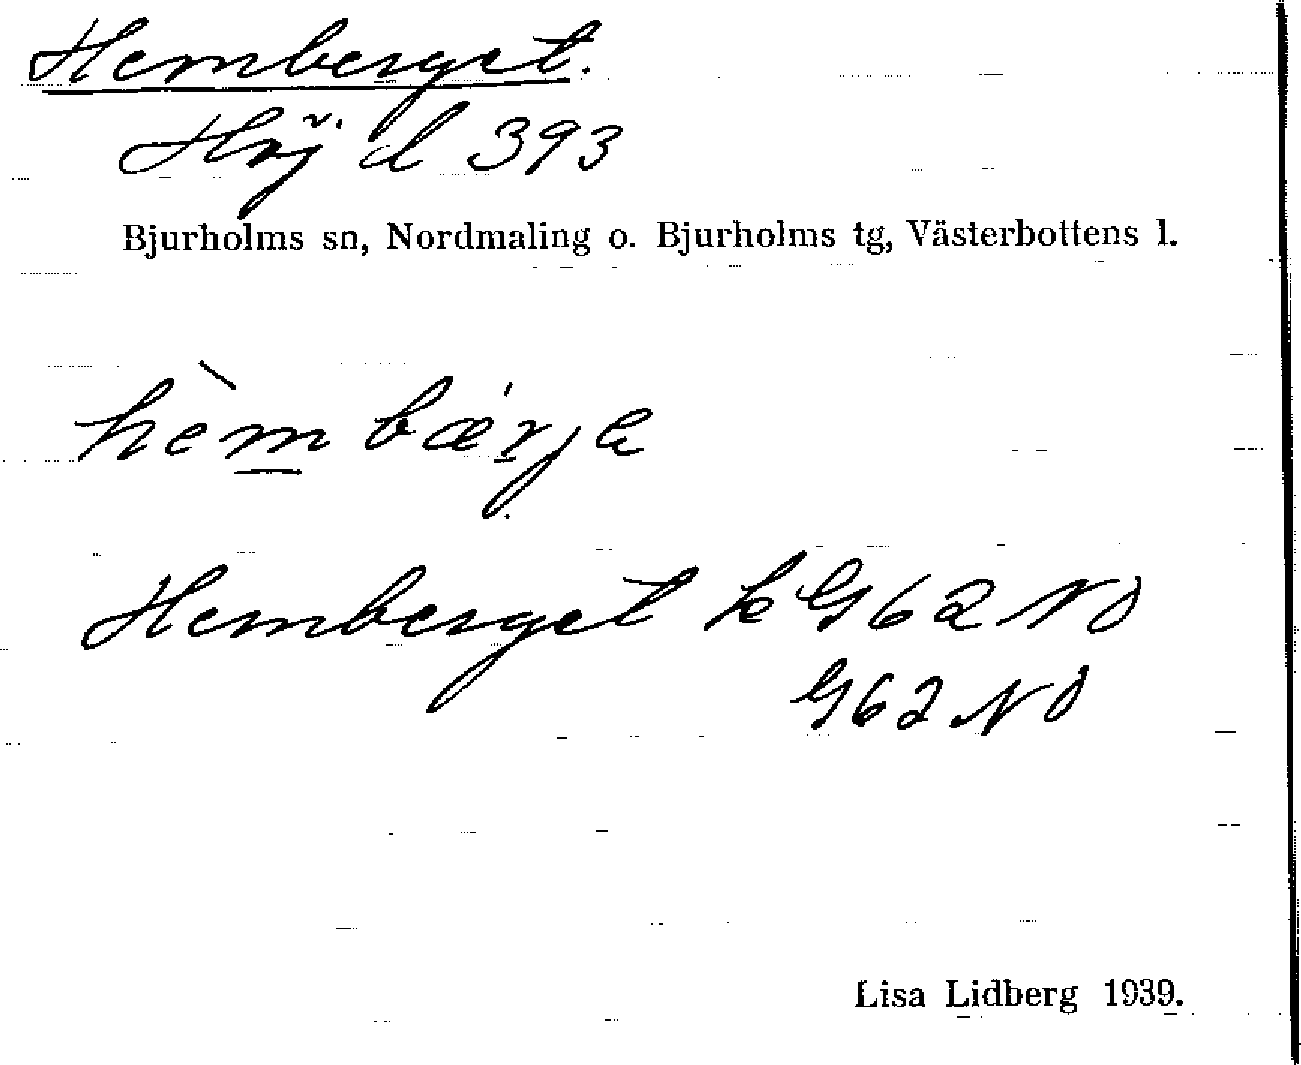 Hemberget.
Höjd 393
Bjurholms sn, Nordmaling o. Bjurholms tg, Västerbottens l.
hèmbǽrje
Hemberget k G62 NO
G62 NO
Lisa Lidberg 1939.